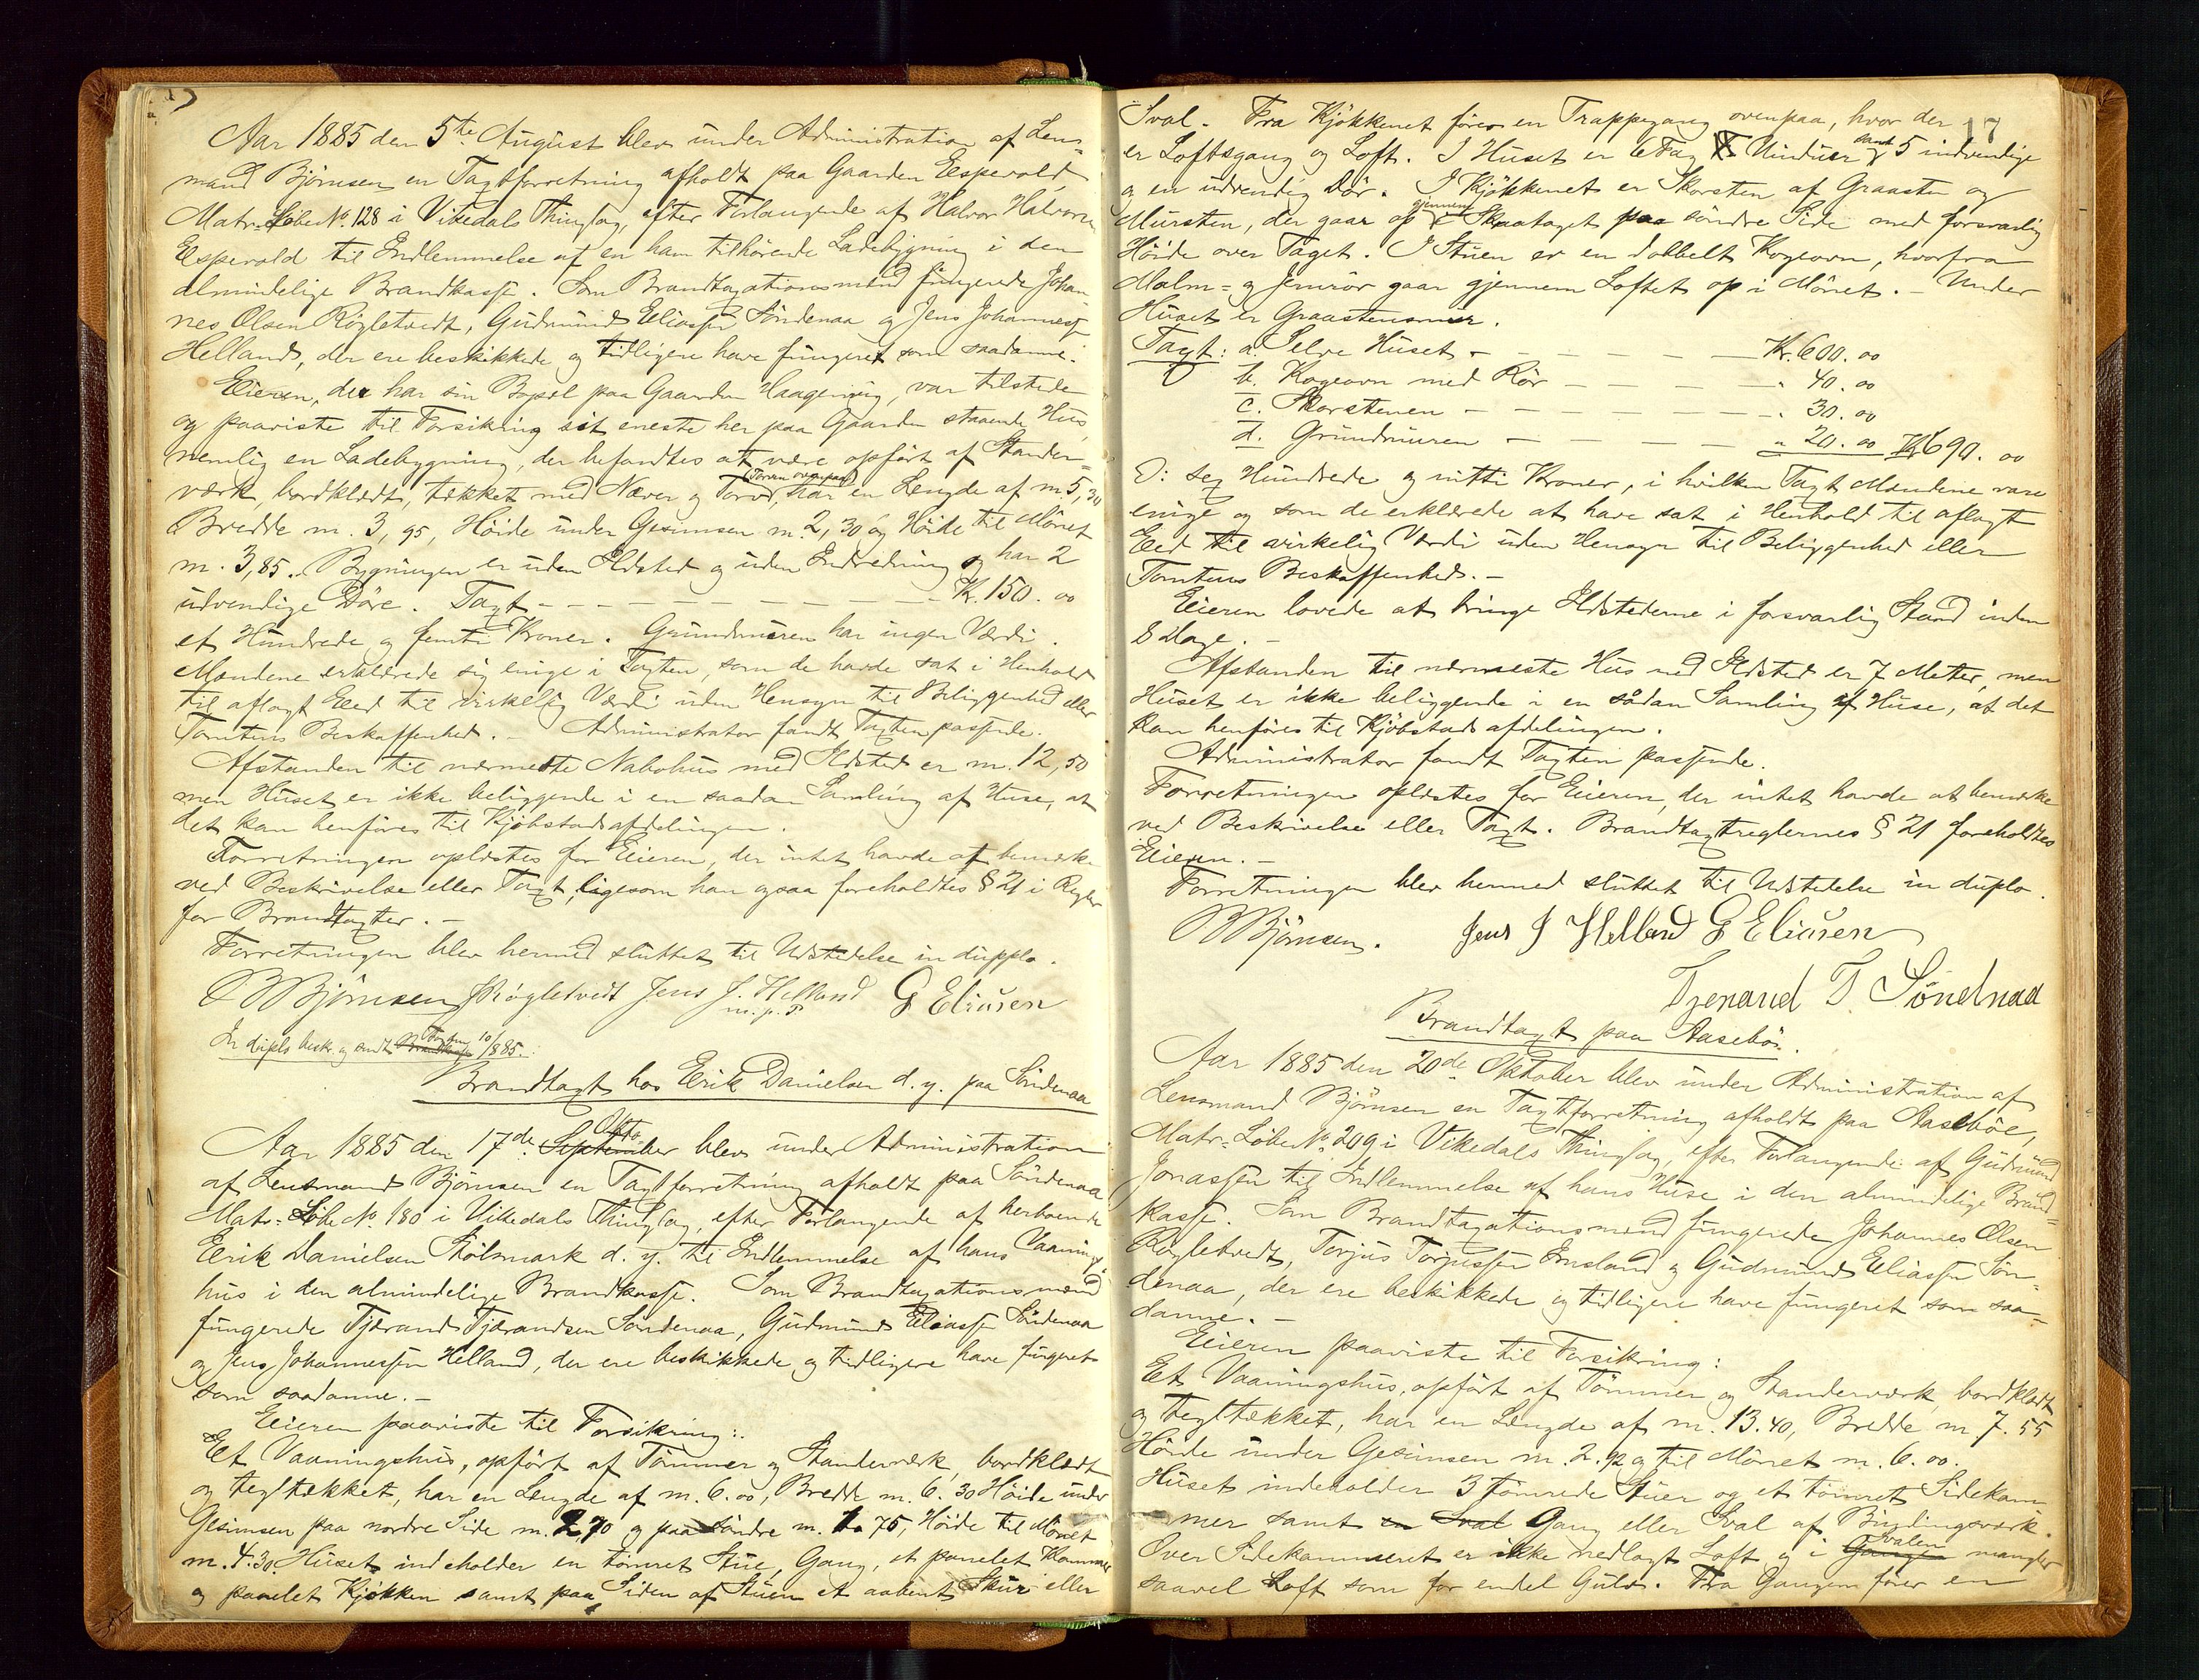 Aar 1885 den 5te August blev under Administration af Lens=
mand Björnsen en Taxtforretning afholdt paa Gaarden Espevold
Matr. Löbe No. 128 i Vikedals Thinglag, efter Forlangende af Halvor Halvorsen
Espevold til Indlemmelse af en ham tilhörende Ladebygning i den
almindelige Brandkasse. Som Brandtaxationsmænd fungerede Johan-
nes Olsen Rögletvedt, Gudmund Eliassen Söndenaa og Jens Johannessen
Helland, der ere beskikkede og tidligere have fungeret som saadanne.
Eieren, der har sin Bopæl paa Gaarden, var tilstede
og paaviste til Forsikring sit eneste her paa Gaarden staaende Hus,
nemlig en Ladebygning, der befandtes at være opfört af Stander-
værk, bordklædt, tækket med Næver og Torv (Torven ovenpaa), har en Længde af m. 5,30
Bredde m. 3,95, Höide under Gesimsen m. 2,30 og Höide til Mönet
m. 3,85. Bygningen er uden Ildsted og uden Indredning og har 2
udvendige Döre. Taxt - - - - - - Kr. 150.00
et Hundrede og femti Kroner. Grundmuren har ingen Værdi.
Mændene erklærede sig enige i Taxten, som de havde sat i Henhold
til aflagt Eed til virkelig Værdi uden Hensyn til Beliggenhed eller
Tomtens Beskaffenhed. - Administrator fandt Taxten passende.
Afstanden til nærmeste Nabohus med Ildsted er m. 12,50
men Huset er ikke beliggende i en saadan Samling af Huse, at
det kan henföres til Kjöbstadsafdelingen.
Forretningen oplæstes for Eieren, der intet havde at bemærke
ved Beskrivelse eller Taxt, ligesom han ogsaa foreholdtes § 21 i Regler
for Brandtaxter. -
Forretningen blev hermed sluttet til Udstedelse in dupplo.
B Björnsen JRögletvedt Jens J. Helland G Eliasen
m. p. P
In duplo beskr. og sendt 10/ 1885.
Brandtaxt hos Eerik Danielsen d. y. paa Söndenaa
Aar 1885 den 17de Oktober blev under Administration
af Lensmand Björnsen en Taxtforretning afholdt paa Söndenaa
Matr. Löbe No. 180 i Vikedals Thinglag, efter Forlangende af herboende
Eerik Danielsen Stölsmark d. y. til Indlemmelse af hans Vaanings-
hus i den almindelige Brandkasse. Som Brandtaxationsmænd
fungerede Tjærand Tjærandsen Söndenaa, Gudmund Eliassen Söndenaa
og Jens Johannessen Helland, der ere beskikkede og tidligere have fungeret
som saadanne. -
Eieren paaviste til Forsikring:
Et Vaaningshus, opfört af Tömmer og Standerværk, bordklædt
og tegltækket, har en Længde af m. 6.00, Bredde m. 6.30 Höide under
Gesimsen paa nordre Side m. 2.70 og paa söndre m. 1.75, Höide til Mönet
m. 4.30. Huset indeholder en tömret Stue, Gang, et panelet Kammer
og panelet Kjökken samt paa Siden af Stuen et aabent Skur eller
17
Sval. Fra Kjökkenet förer en Trappegang ovenpaa, hvor der
er Loftsgang og Loft. I Huset er 6 Fag Vinduer samt 5 indvendige
og en udvendig Dör. I Kjökkenet er Skorsten af Graasten og
Mursten, der gaar op gjennem Skraataget paa söndre Side med forsvarlig
Höide over Taget. I Stuen er en dobbelt Kogeovn, hvorfra
Malm= og Jernrör gaar gjennem Loftet op i Mönet. - Under
Huset er Graastensmur.
Taxt: a. Selve Huset - - - - - Kr. 600.00
b. Kogeovn med Rör - - - - - " 40.00
c. Skorstenen - - - - - - " 30.00
d. Grundmuren - - - - " 20.00 Kr 690.00
O: sex Hundrede og nitti Kroner, i hvilken Taxt Mændene vare
enige og som de erklærede at have sat i Henhold til aflagt
Eed til virkelig Værdi uden Hensyn til Beliggenhed eller
Tomtens Beskaffenhed. -
Eieren lovede at bringe Ildstederne i forsvarlig Stand inden
8 Dage. -
Afstanden til nærmeste Hus med Ildsted er 7 Metter, men
Huset er ikke beliggende i en sådan Samling af Huse, at det
kan henföres til Kjöbstadsafdelingen.
Administrator fandt Taxten passende.
Forretningen oplæstes for Eieren, der intet havde at bemærke
ved Beskrivelse eller Taxt. Brandtaxtreglernes § 21 foreholdtes
Eieren. -
Forretningen blev hermed sluttet til Udstedelse in duplo.
B Björnsen. Jens J Helland G Eliasen
Tjerand T. Söndnaa
Brandtaxt paa Aasebö.
Aar 1885 den 20de Oktober blev under Administration af
Lensmand Björnsen en Taxtforretning afholdt paa Aaseböe,
Matr. Löbe No. 209 i Vikedals Thinglag, efter Forlangende af Gudmund
Jonassen til Indlemmelse af hans Huse i den almindelige Brand-
kasse. Som Brandtaxationsmænd fungerede Johannes Olsen
Rögletvedt, Torjus Torjussen Imsland og Gudmund Eliassen Sön-
denaa, der ere beskikkede og tidligere have fungeret som saa-
danne. -
Eieren paaviste til Forsikring:
Et Vaaningshus, opfört af Tömmer og Standerværk, bordklædt
og tegltækket, har en Længde af m. 13.40, Bredde m. 7.55
Höide under Gesimsen m. 2.92 og til Mönet m. 6.00.
Huset indeholder 3 tömrede Stuer og et tömret Sidekam-
mer samt en Sval Gang eller Sval af Bindingsværk.
Over Sidekammeret er ikke nedlagt Loft og i Svalen mangler
saavel Loft som for endel Gulv. Fra Gangen förer en